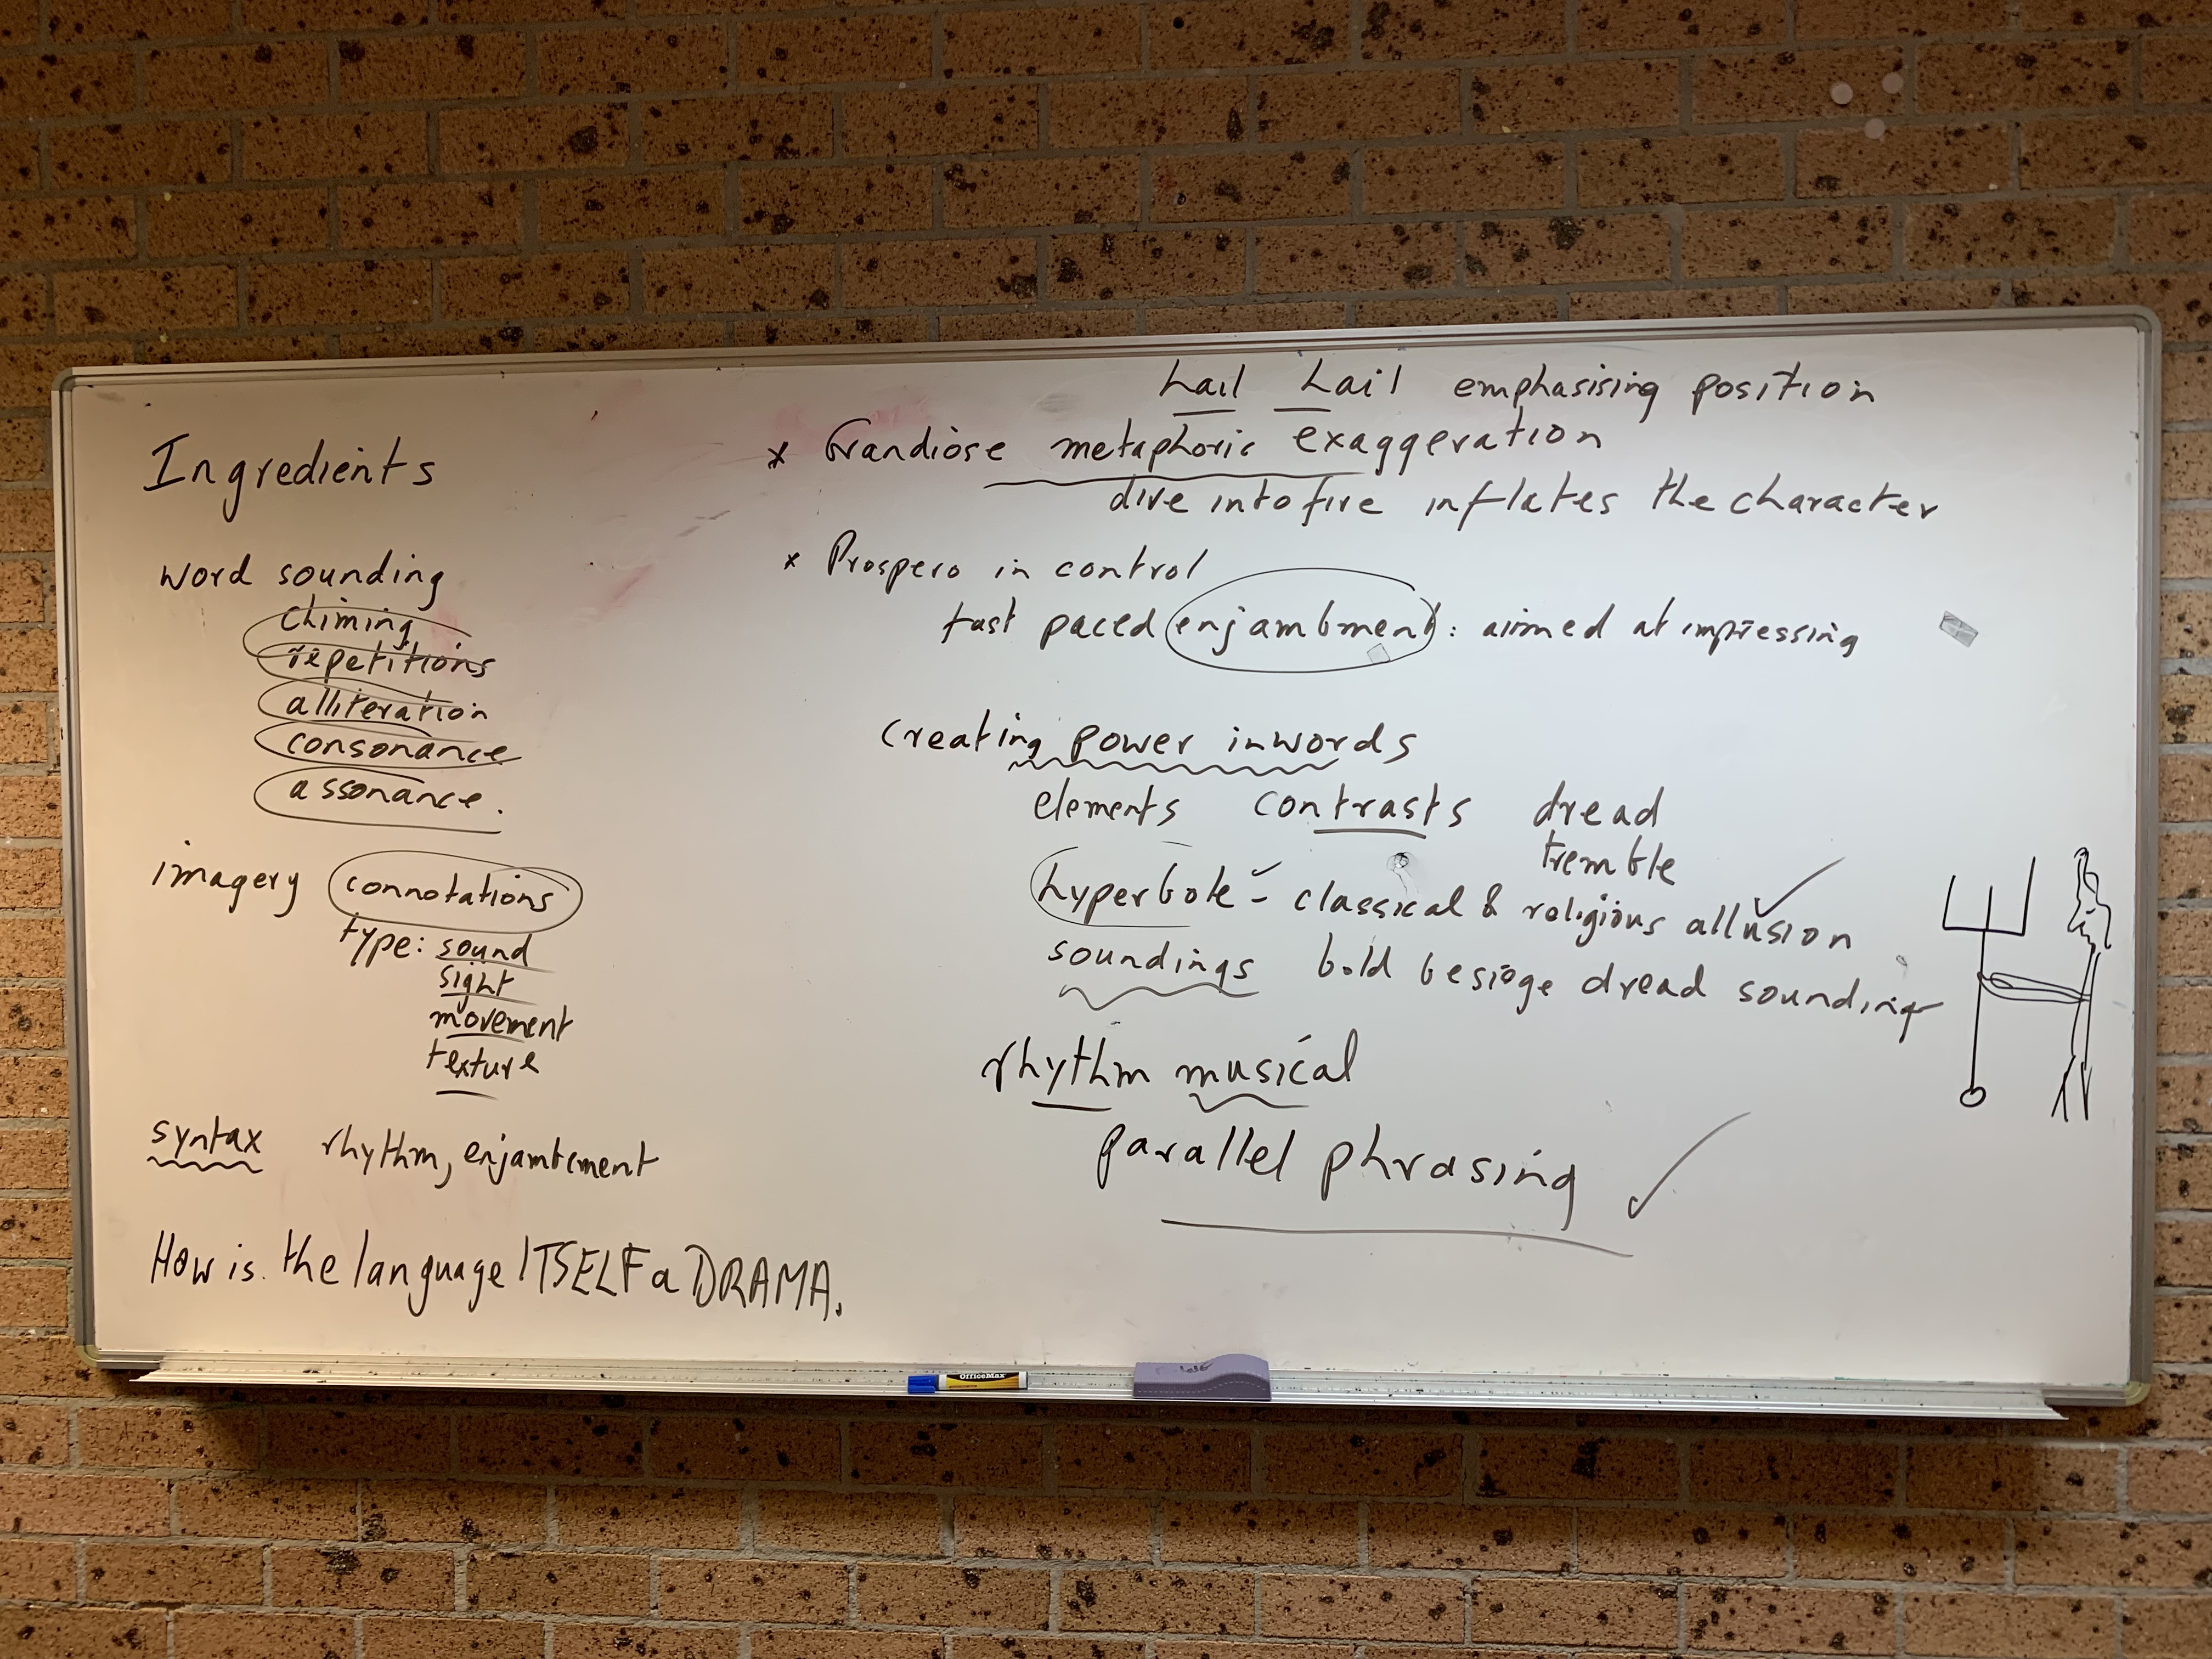 Ingredients
word sounding
chiming
repetitions
alliteration
consonance
assonance.
imagery connotations
type: sound
sight
movement
texture
syntax rhythm, enjambement
How is the language ITSELF a DRAMA.
hail hail emphasising position
x Grandiose metaphoric exaggeration
dive into fire inflates the character
x Prospero in control
fast paced enjambment: aimed at impressing
creating power in words
elements contrasts dread
tremble
hyperbole - classical & religious allusion
soundings bold besiege dread sounding
rhythm musical
parallel phrasing
OfficeMax